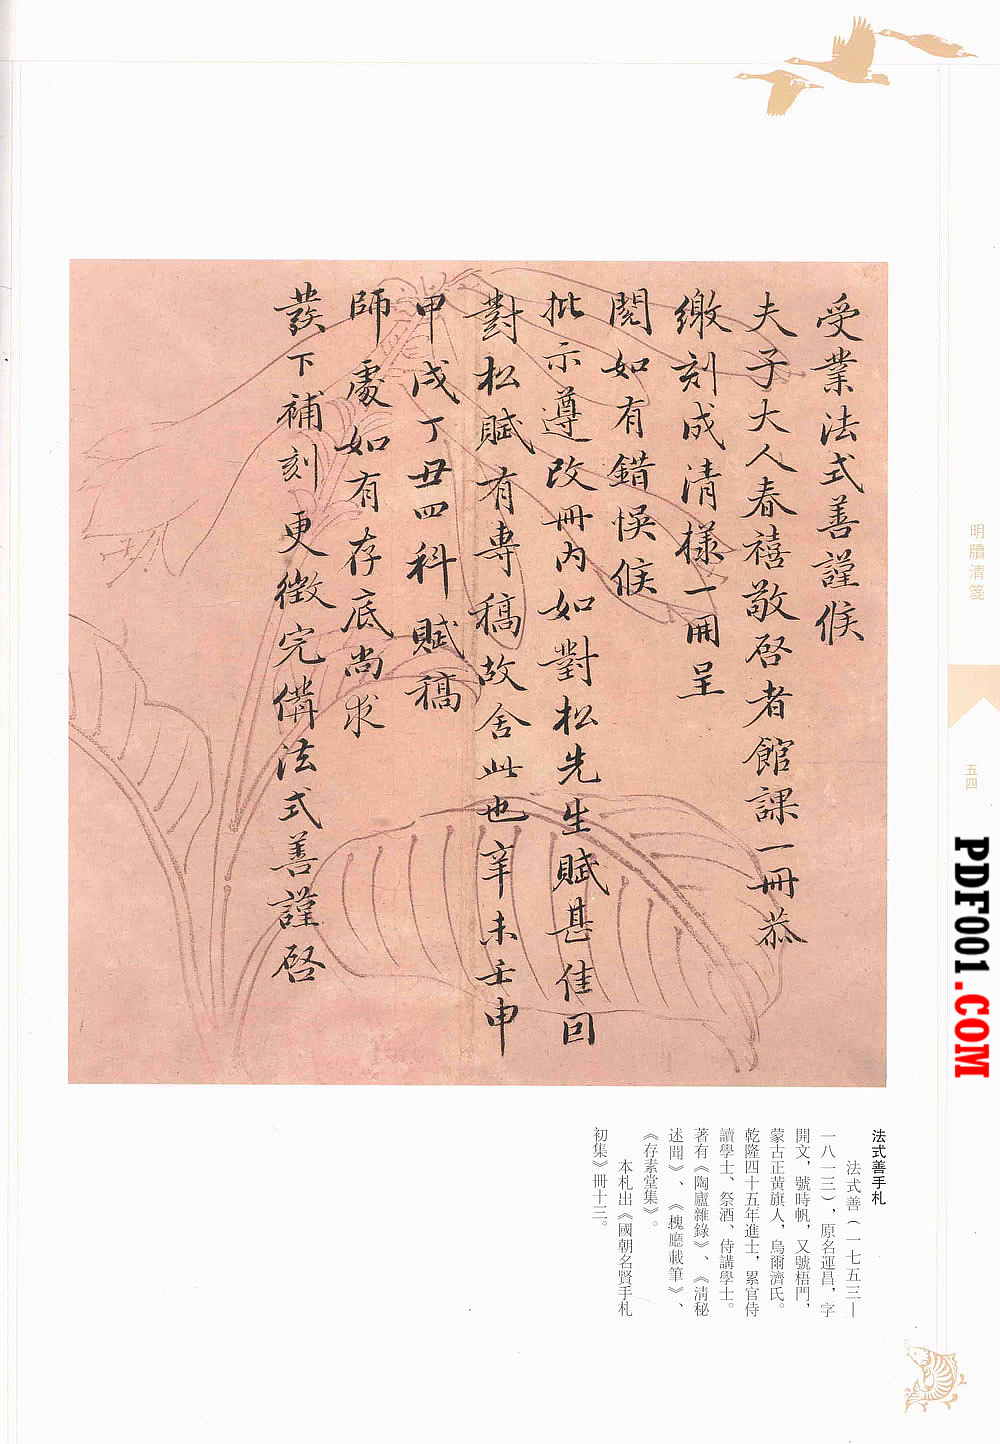 受業法式善謹候
夫子大人春禧敬啓者館課一冊恭
繳刻成清樣一冊呈
閱如有錯悞候
批示遵改冊内如對松先生賦甚佳因
對松賦有專稿故舍此也辛未壬申
甲戌丁丑四科賦稿
師處如有存底尚求
發下補刻更徵完備法式善謹啓
明牘清箋
五四
PDF001.COM
法式善手札
法式善（一七五三—
一八一三），原名運昌，字
開文，號時帆，又號梧門，
蒙古正黃旗人，烏爾濟氏。
乾隆四十五年進士，累官侍
讀學士、祭酒、侍講學士。
著有《陶廬雜錄》、《清秘
述聞》、《槐廳載筆》、
《存素堂集》。
本札出《國朝名賢手札
初集》冊十三。